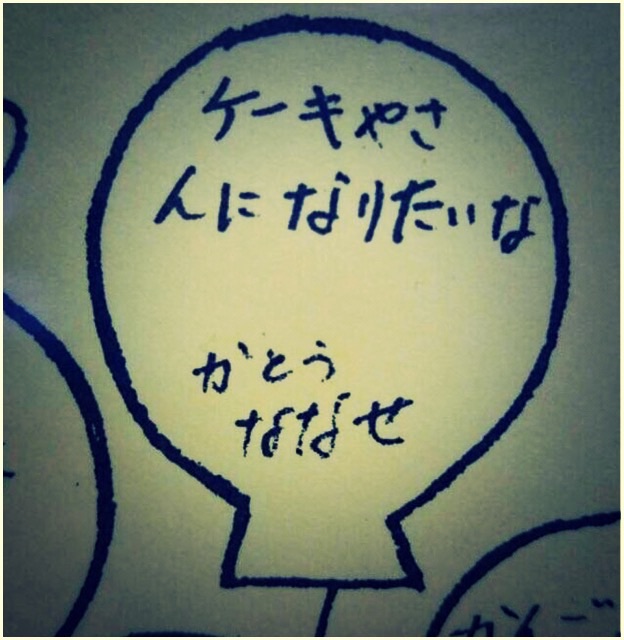 ケーキやさ
んになりたいな
かとう
ななせ
かんご